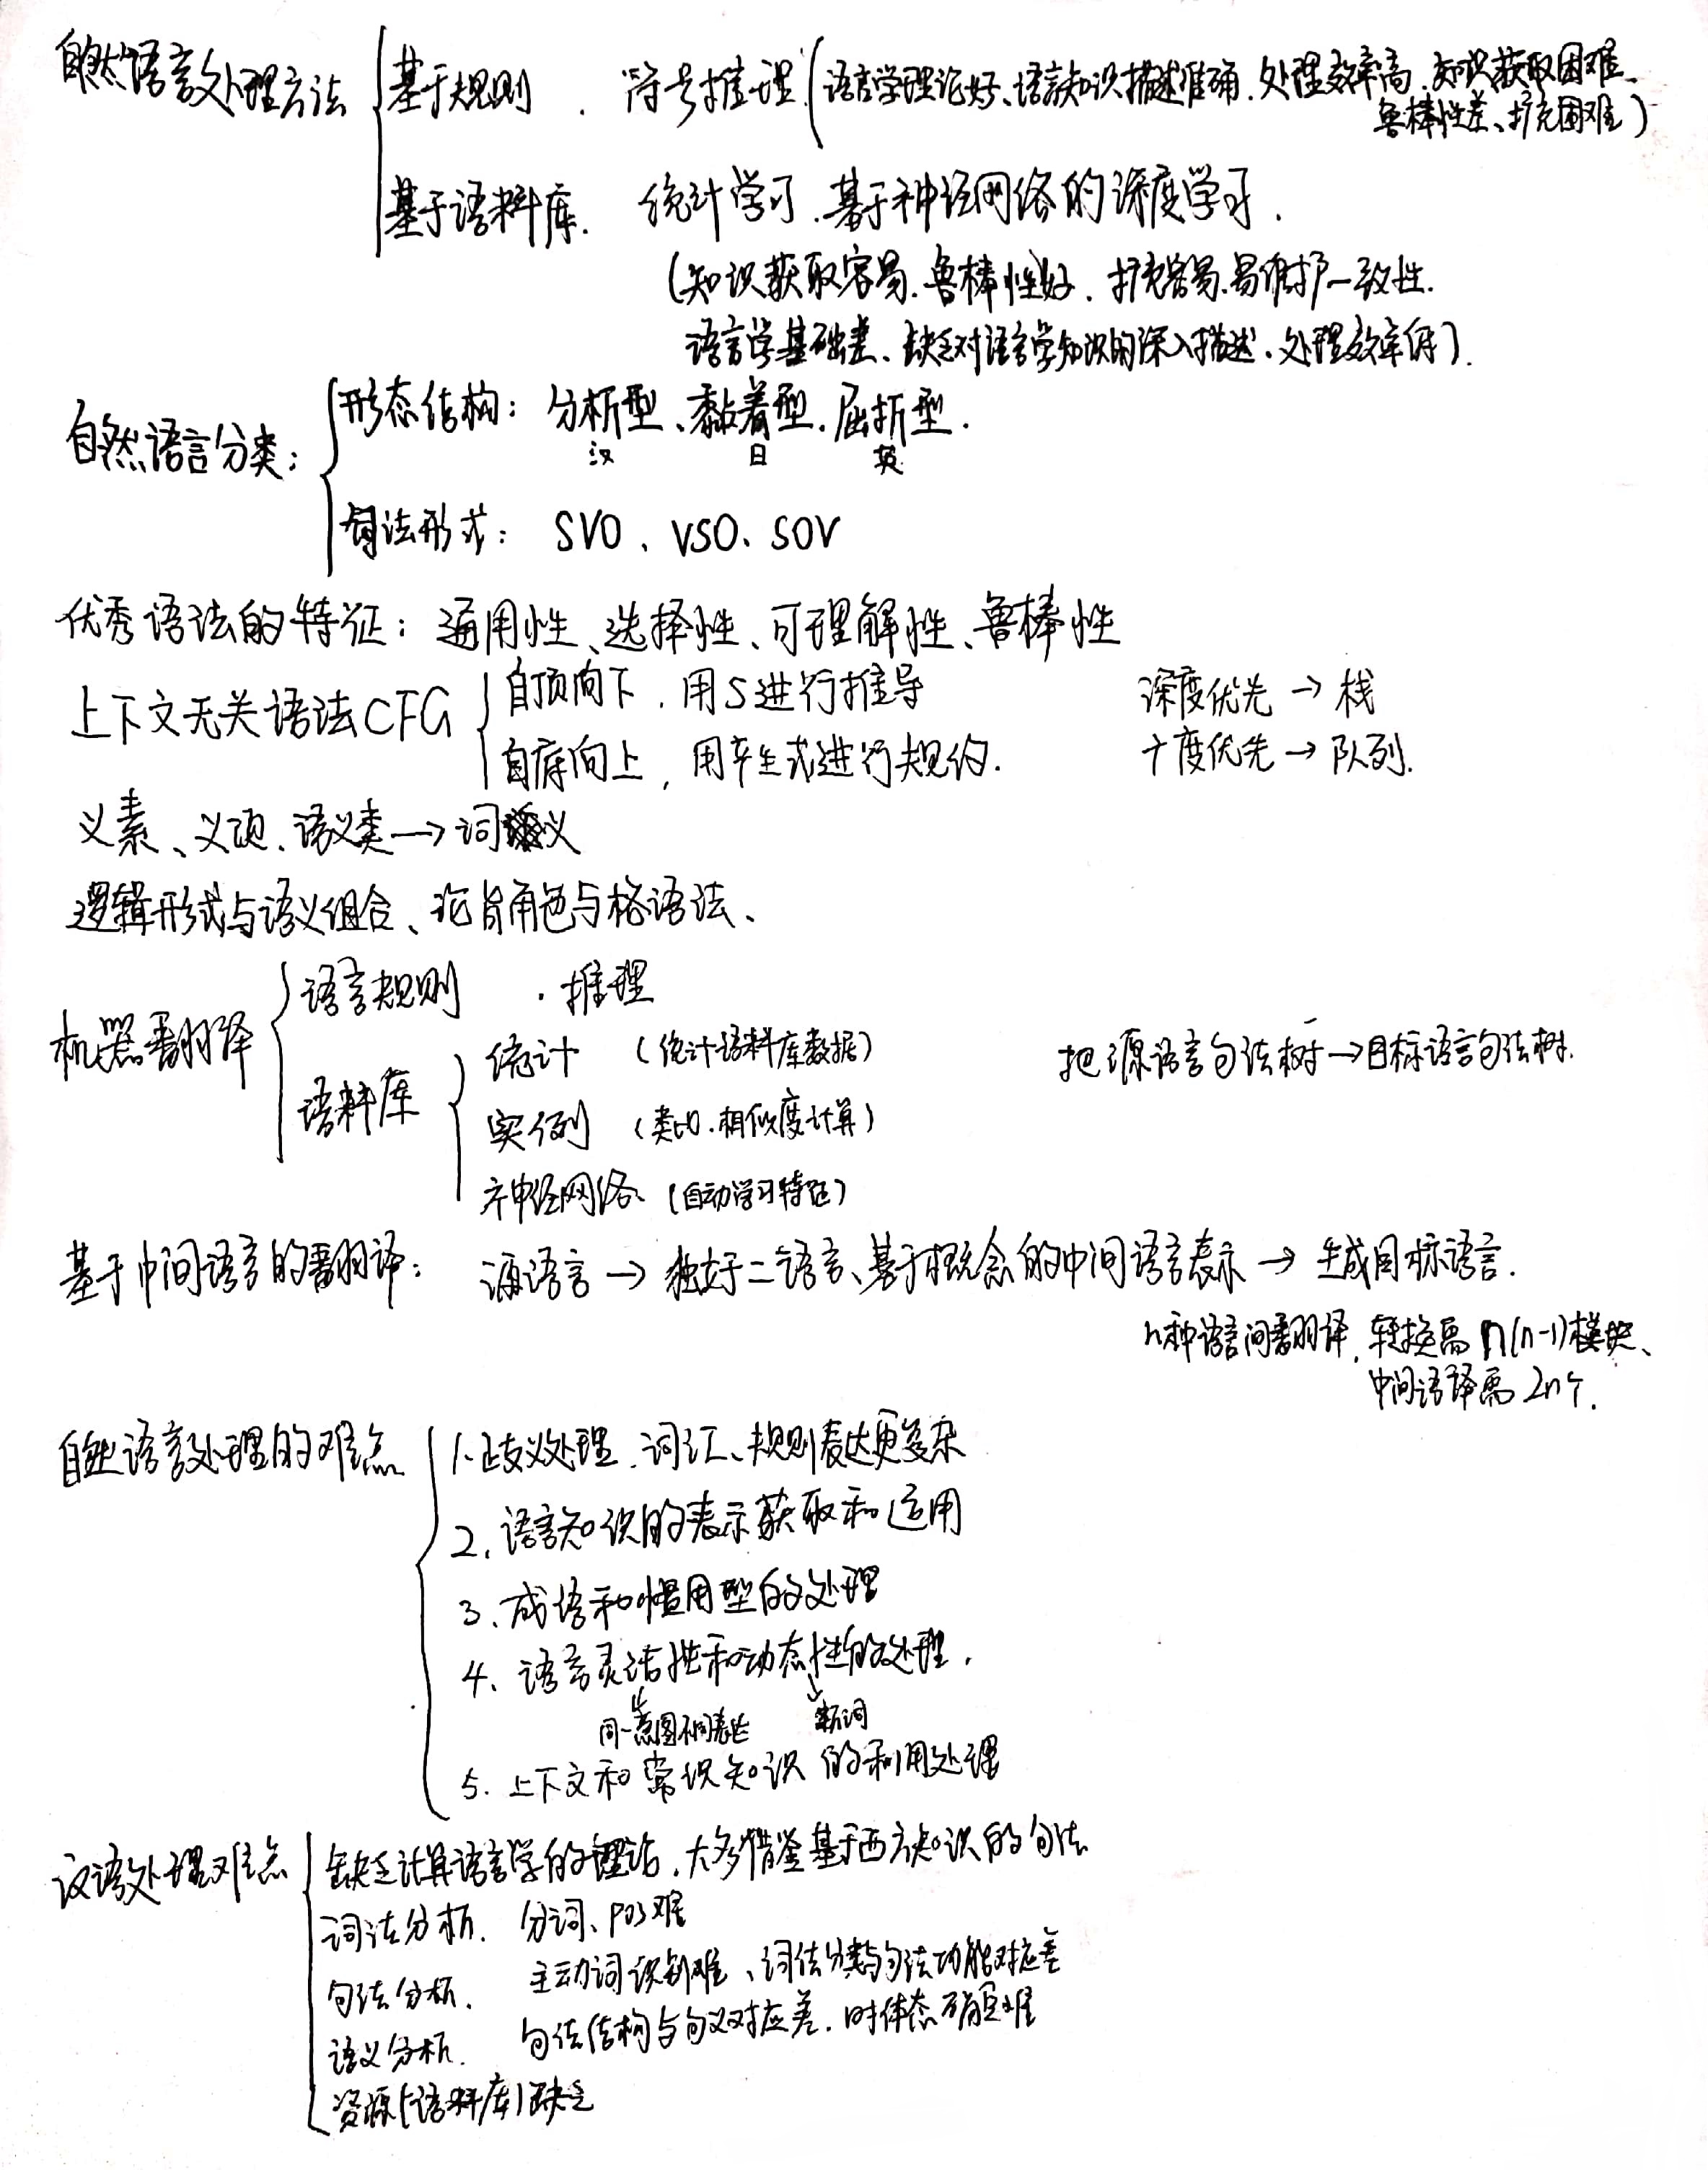 自然语言处理方法
基于规则 . 符号推理 (语言学理论好、语言知识描述准确、处理效率高、知识获取困难、
鲁棒性差、扩充困难)
基于语料库. 统计学习. 基于神经网络的深度学习.
(知识获取容易、鲁棒性好、扩充容易、易维护一致性.
语言学基础差、缺乏对语言学知识的深入描述、处理效率低).
自然语言分类:
形态结构: 分析型、黏着型、屈折型.
汉 日 英
句法形式: SVO、VSO、SOV
优秀语法的特征: 通用性、选择性、可理解性、鲁棒性
上下文无关语法CFG
自顶向下, 用S进行推导 深度优先 → 栈
自底向上, 用产生式进行规约. 广度优先 → 队列.
义素、义项、语义类 → 词义
逻辑形式与语义组合、论旨角色与格语法、
机器翻译
语言规则 . 推理
语料库
统计 (统计语料库数据) 把源语言句法树→目标语言句法树.
实例 (类比、相似度计算)
神经网络 (自动学习特征)
基于中间语言的翻译: 源语言 → 独立于二语言、基于概念的中间语言表示 → 生成目标语言.
n种语言间翻译, 转换需 n(n-1)模块、
中间语译需 2n个.
自然语言处理的难点
1. 歧义处理、词汇、规则表达更复杂
2. 语言知识的表示获取和运用
3. 成语和惯用型的处理
4. 语言灵活性和动态性的处理.
同一意图不同表达 新词
5. 上下文和常识知识的利用处理
汉语处理难点
缺乏计算语言学的理论, 大多借鉴基于西方知识的句法
词法分析. 分词、POS难
句法分析. 主动词识别难、词法分类与句法功能对应差
语义分析. 句法结构与句义对应差, 时体态确定难
资源(语料库)缺乏